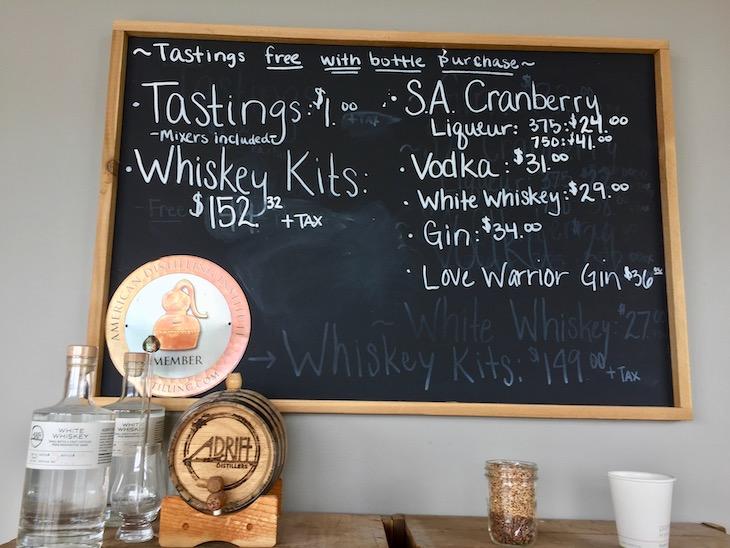 ~Tastings free with bottle purchase~
· Tastings: $1.00
-Mixers included-
· Whiskey Kits:
$152.32 + TAX
· S.A. Cranberry
Liqueur: 375:$24.00
750:$41.00
· Vodka: $31.00
· White Whiskey: $29.00
· Gin: $34.00
· Love Warrior Gin $36
~ White Whiskey: $27.
→ Whiskey Kits: $149.00 + TAX
AMERICAN DISTILLING INSTITUTE
MEMBER
WHITE
WHISKEY
ADRIFT
DISTILLERS